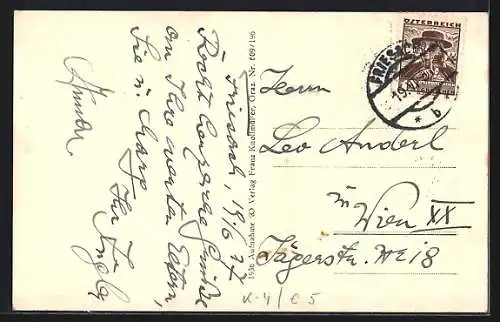 Friesach, 19/6 37
Recht herzliche Grüße
an Ihre werten Eltern,
Sie u.
Ihr
1936 Aufnahme u. Verlag Franz Knollmüller, Graz. Nr. 609/196
ÖSTERREICH
FRIESACH
b
Herrn
Leo Anderl
in Wien XX
Jägerstr. 18
K-4/e 5